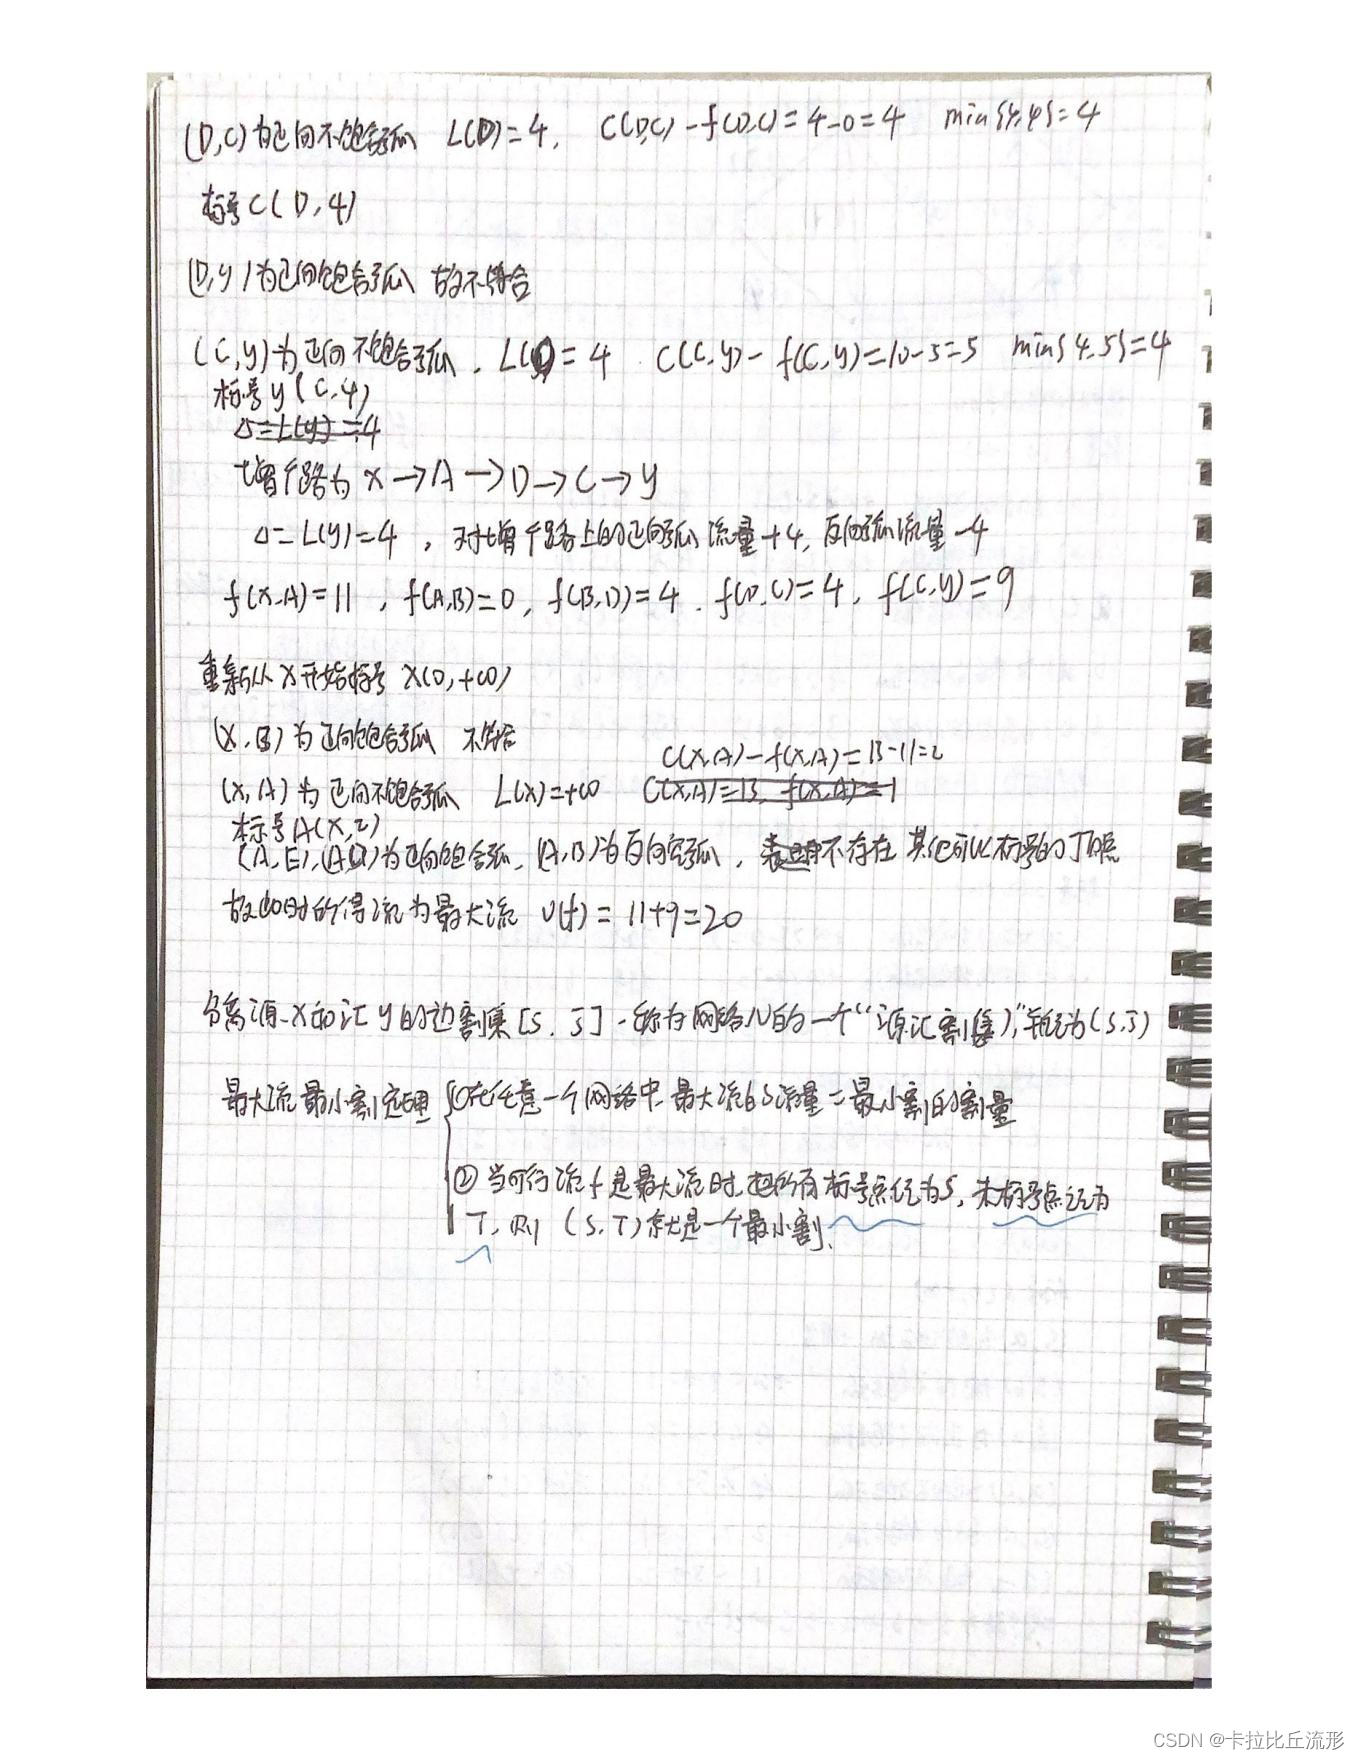 (D,C)为正向不饱和弧 L(D)=4, C(D,C)-f(D,C)=4-0=4 min{4,4}=4
标号C(D,4)
(D,y)为正向饱和弧 故不符合
(C,y)为正向不饱和弧. L(C)=4 C(C,y)-f(C,y)=10-5=5 min{4,5}=4
标号y(C,4)
Δ=L(y)=4
增广路为 x→A→D→C→y
Δ=L(y)=4, 对增广路上的正向弧流量+4, 反向弧流量-4
f(x,A)=11, f(A,B)=0, f(B,D)=4. f(D,C)=4, f(C,y)=9
重新从x开始标号 x(0,+∞)
(x,B)为正向饱和弧 不符合
C(x,A)-f(x,A)=13-11=2
(x,A)为正向不饱和弧 L(x)=+∞ C(x,A)=13, f(x,A)=1
标号A(x,2)
(A,E),(A,D)为正向饱和弧, (A,B)为反向空弧, 不存在其他可以标号的顶点
故此时所得流为最大流 v(f)=11+9=20
分离源x和汇y的边割集[S,S̄].称为网络N的一个“源汇割(集)”,记为(S,S̄)
最大流最小割定理 ①在任意一个网络中,最大流的流量=最小割的割量
②当可行流f是最大流时,把所有标号点记为S,未标号点记为
T,则(S,T)就是一个最小割.
CSDN @卡拉比丘流形